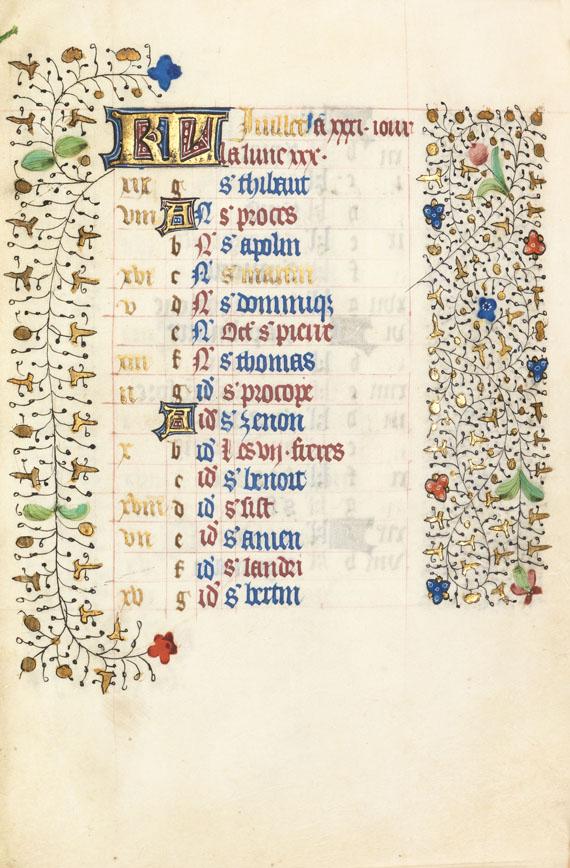 KL Juillet a xxxi · iour
la lune xxx ·
xix g s' thibaut
viii A N s' proces
b N s' apolin
xvi c N s' martin
v d N s' dominiq3
e N Oct s' pierre
xiii f N s' thomas
ii g id s' procope
A id s' zenon
x b id Les vii · freres
c id s' benoit
xviii d id s' sist
vii e id s' anien
f id s' landri
xv g id s' bertin